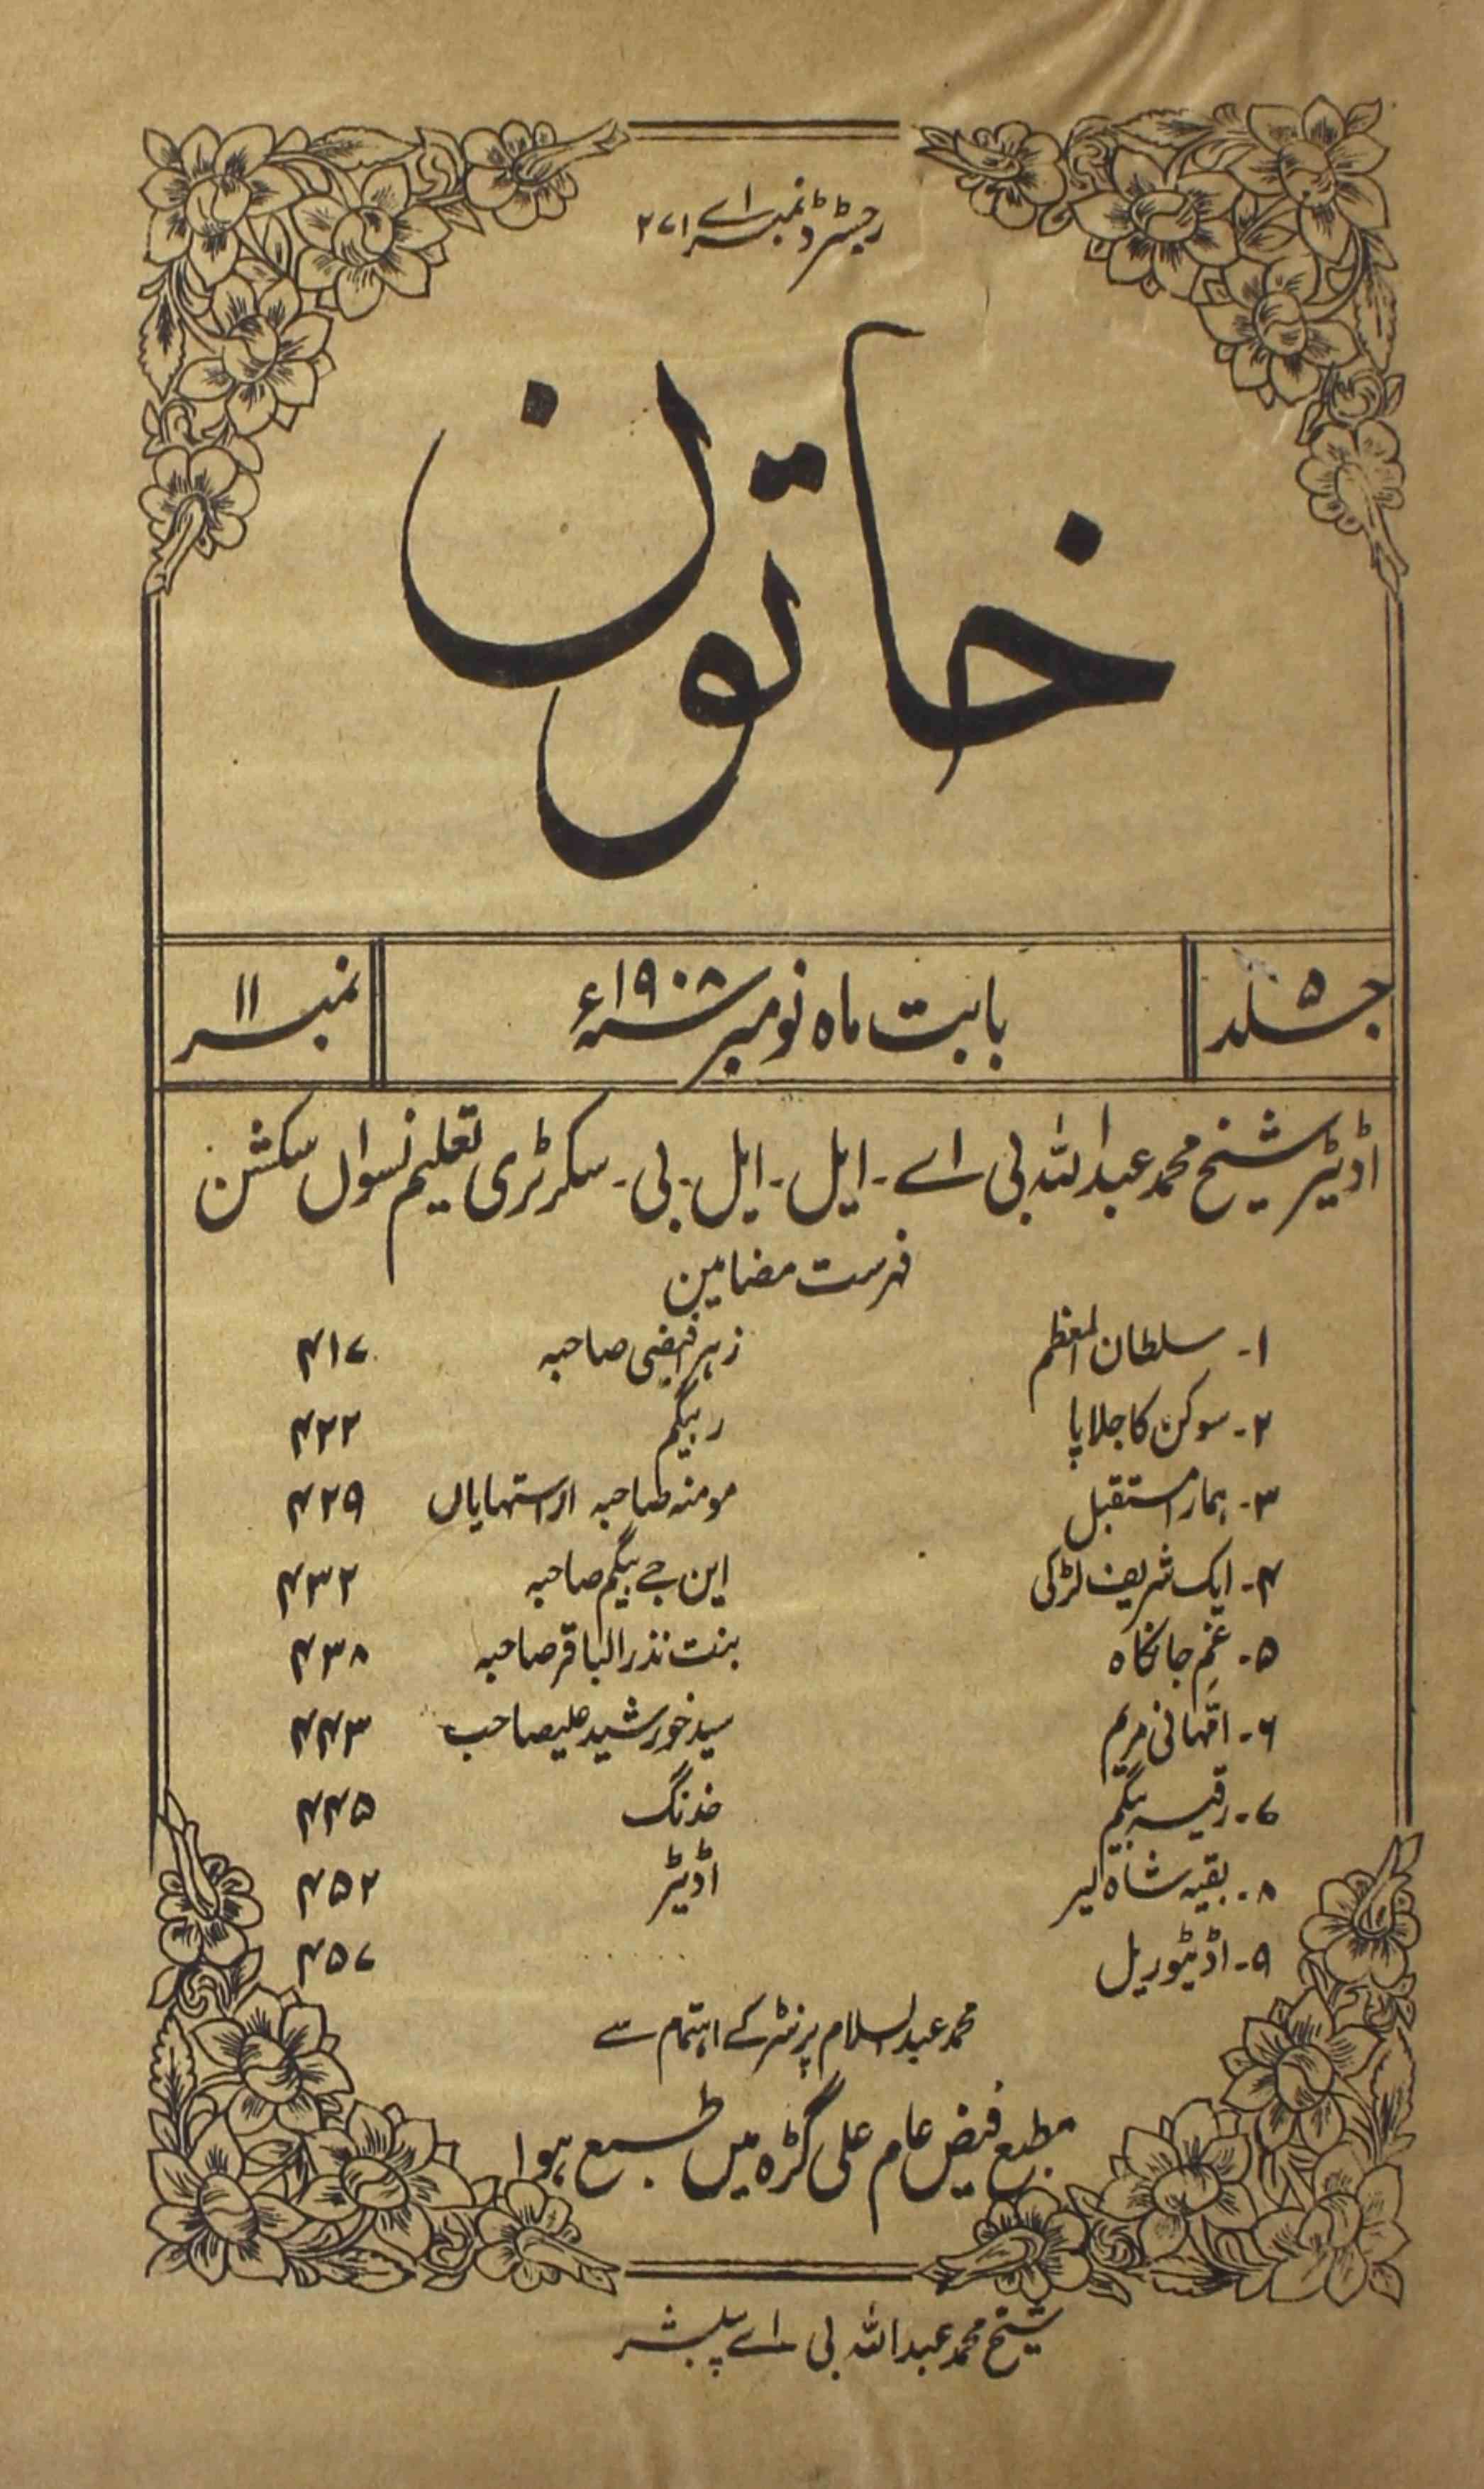 رجسٹرڈ نمبر اے ۲۷۱
خاتون
جلد ۵ بابت ماہ نومبر سنہ ۱۹۰۸ء نمبر ۱۱
اڈیٹر شیخ محمد عبداللہ بی اے ۔ ایل ۔ ایل ۔ بی ۔ سکرٹری تعلیم نسواں سکشن
فہرست مضامین
۱ ۔ سلطان المعظم زہرا فیضی صاحبہ ۴۱۷
۲ ۔ سوکن کا جلاپا ر بیگم ۴۲۲
۳ ۔ ہمارا مستقبل مومنہ صاحبہ از استہایاں ۴۲۹
۴ ۔ ایک شریف لڑکی این جے بیگم صاحبہ ۴۳۲
۵ ۔ غم جانکاہ بنت نذر الباقر صاحبہ ۴۳۸
۶ ۔ امّہانی مریم سید خورشید علیصاحب ۴۴۳
۷ ۔ رقیہ بیگم خدنگ ۴۴۵
۸ ۔ بقیہ شاہ لیر اڈیٹر ۴۵۲
۹ ۔ اڈیٹوریل ...... ۴۵۷
محمد عبدالسلام پرنٹر کے اہتمام سے
مطبع فیض عام علی گڑہ میں طبع ہوا
شیخ محمد عبداللہ بی اے پبلشر